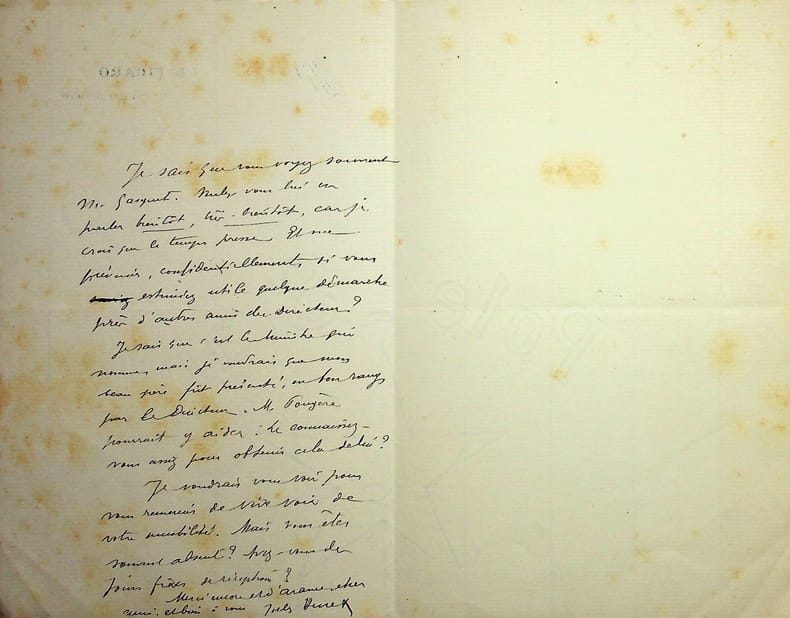 Je sais que vous voyez souvent
Mr. Gasquet. Voulez vous lui en
parler bientôt, très-bientôt, car je
crois que le temps presse. Et me
prévenir, confidentiellement, si vous
estimiez utile quelque démarche
près d'autres amis du Directeur ?
Je sais que c'est le Ministre qui
nomme, mais je voudrais que mon
beau père fût présenté, en bon rang,
par le Directeur. M. Fougère
pourrait y aider : Le connaissez-
vous assez pour obtenir cela de lui ?
Je voudrais vous voir pour
vous remercier de vive voix de
votre amabilité. Mais vous êtes
souvent absent ? Avez-vous des
jours fixes de réception ?
Merci encore et d'avance, cher
ami, et bien à vous Jules Huret